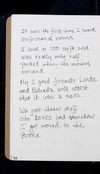 It was the first time I hired
professional movers
I lived in 500 sq ft and
was really only half
packed when the movers
arrived
My 2 good friends Linda
and Belinda will attest
that it was a mess.
We just threw stuff
into boxes and somehow
I got moved to the
Bronx